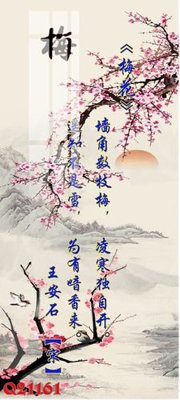 梅
《梅花》
墙角数枝梅，凌寒独自开。
遥知不是雪，为有暗香来。
王安石【宋】
Q21161